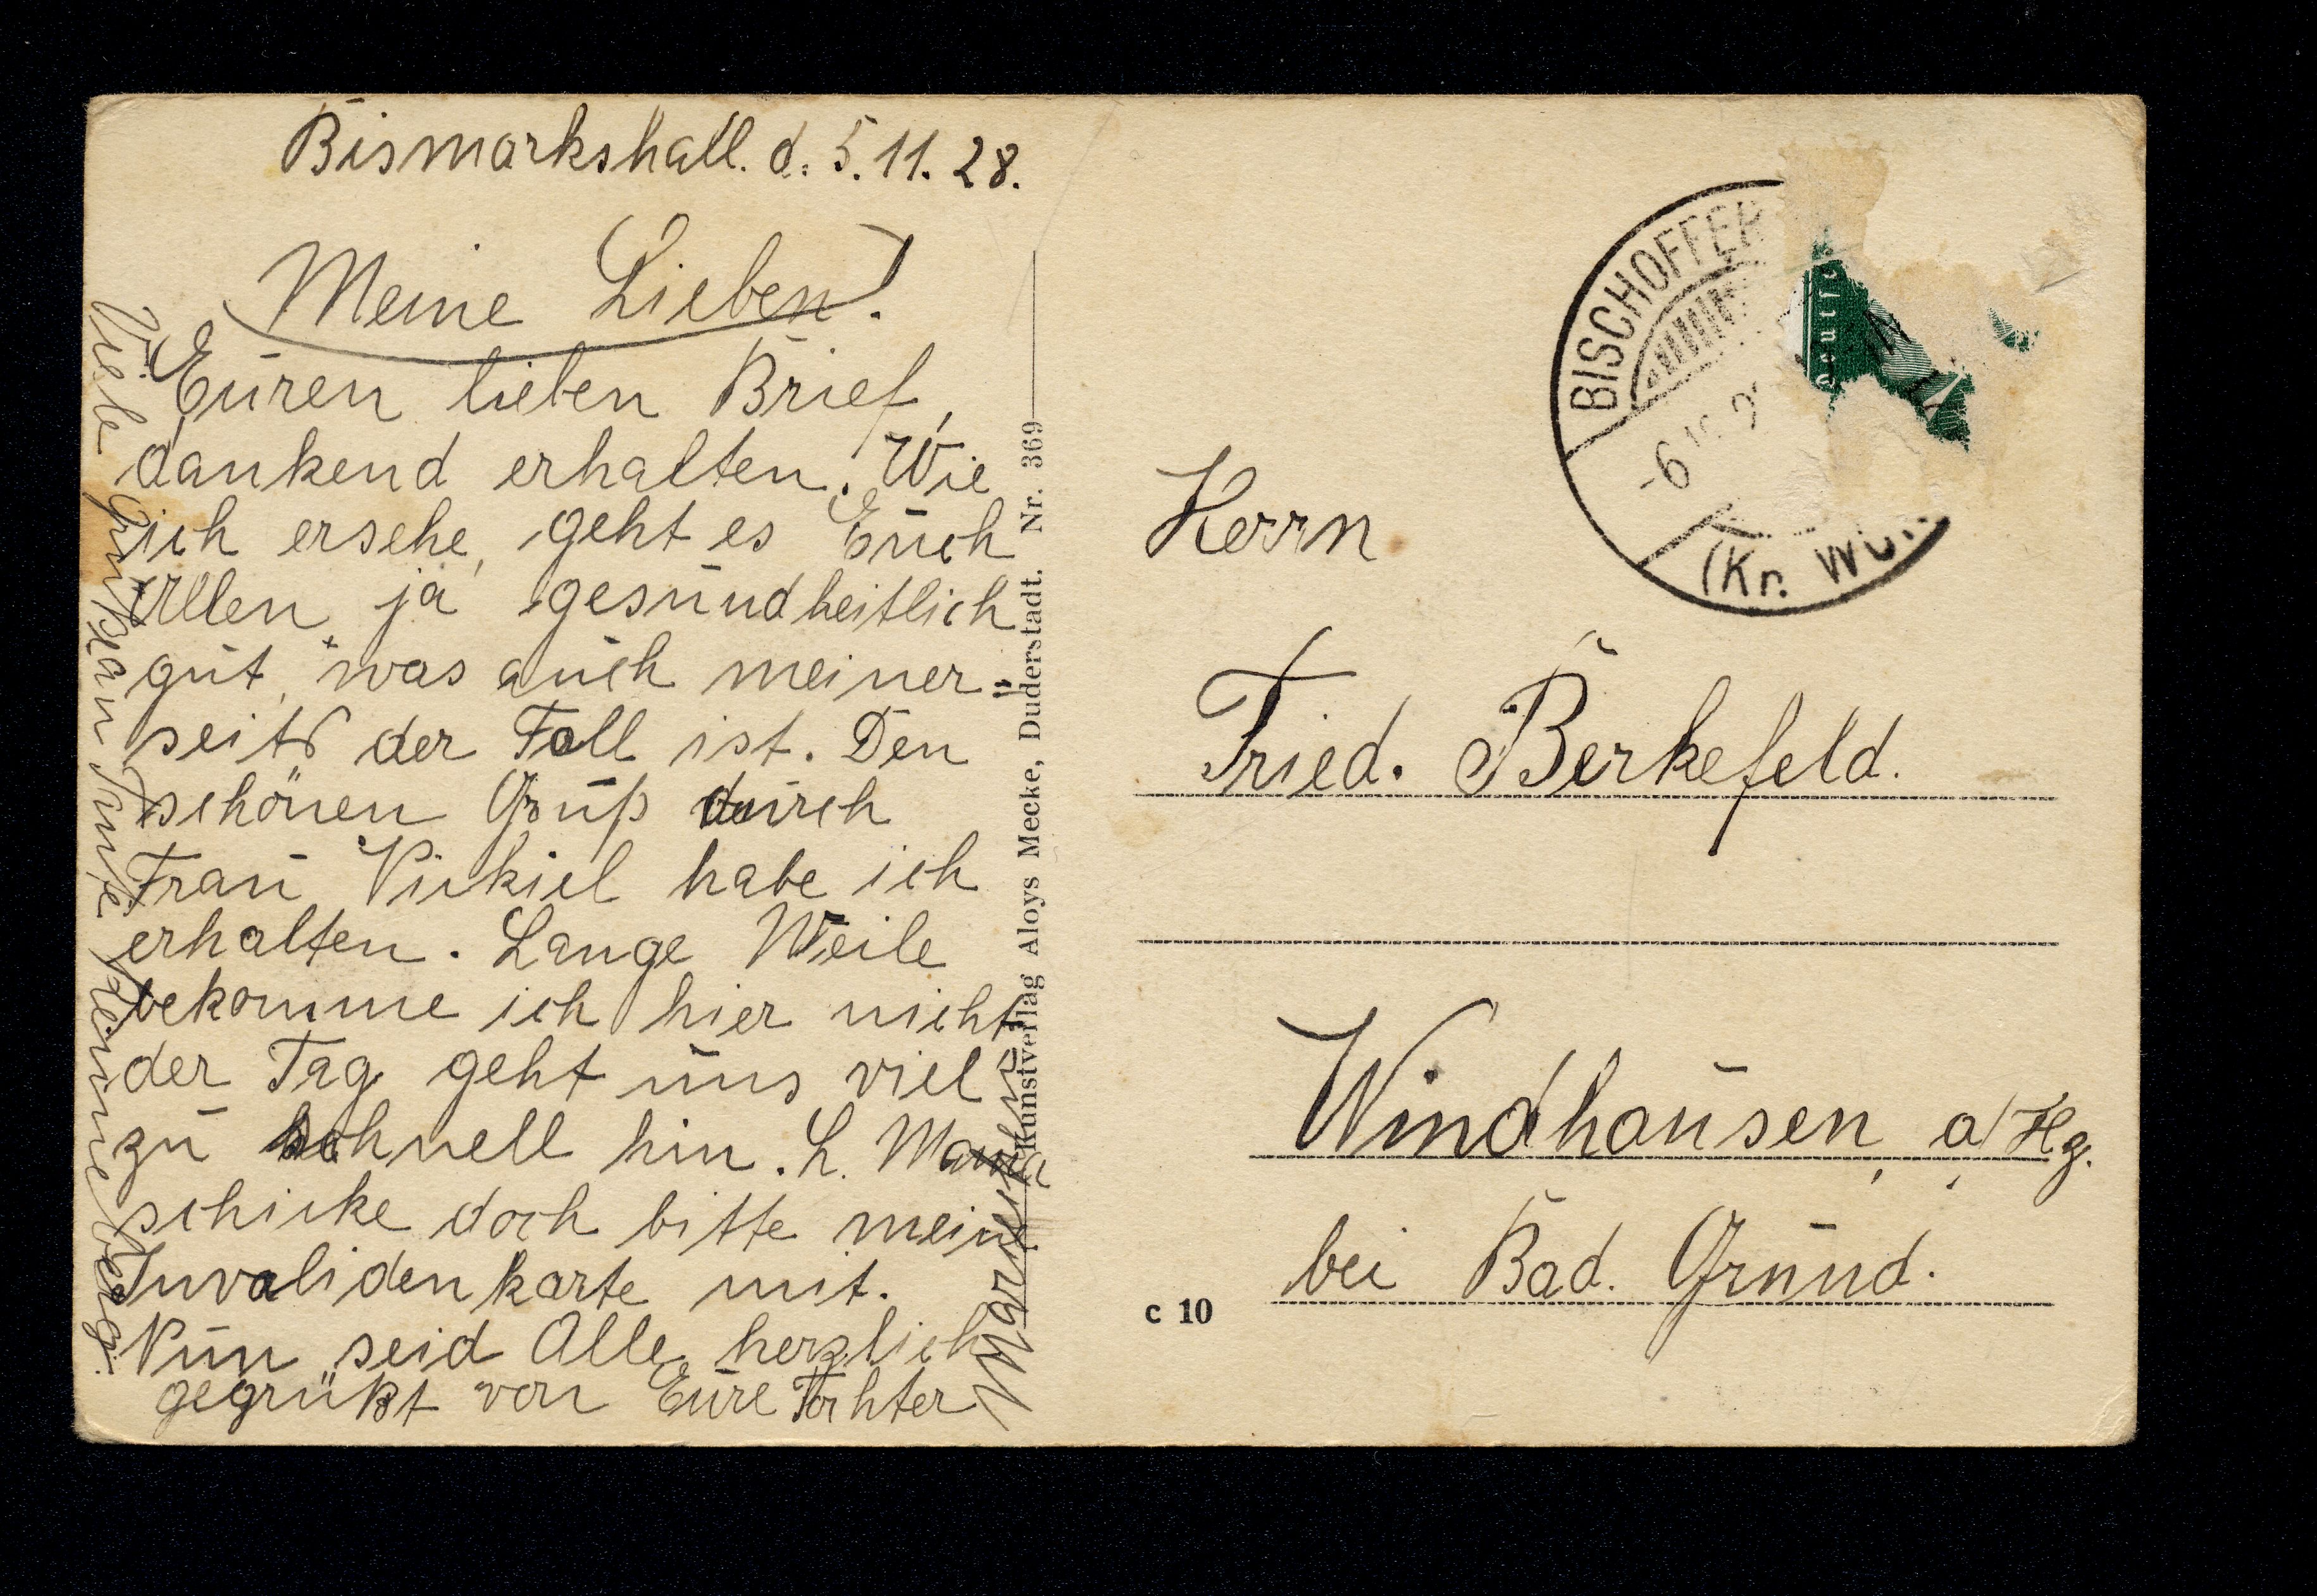 Bismarkshall. d. 5.11.28.
Meine Lieben!
Euren lieben Brief,
dankend erhalten. Wie
ich ersehe, geht es Euch
Allen ja gesundheitlich
gut, was auch meiner-
seits der Fall ist. Den
schönen Gruß durch
Frau habe ich
erhalten. Lange Weile
bekomme ich hier nicht
der Tag geht uns viel
zu schnell hin. L. Mama
schicke doch bitte meine
Invalidenkarte mit.
Nun seid Alle herzlich
gegrüßt von Eure Tochter
Viele Grüße an Tante
Kunstverlag Aloys Mecke, Duderstadt. Nr. 369
BISCHOFFER
-6
(Kr. WO
Herrn
Fried. Berkefeld.
Windhausen, a/Hz.
bei Bad. Grund.
c 10